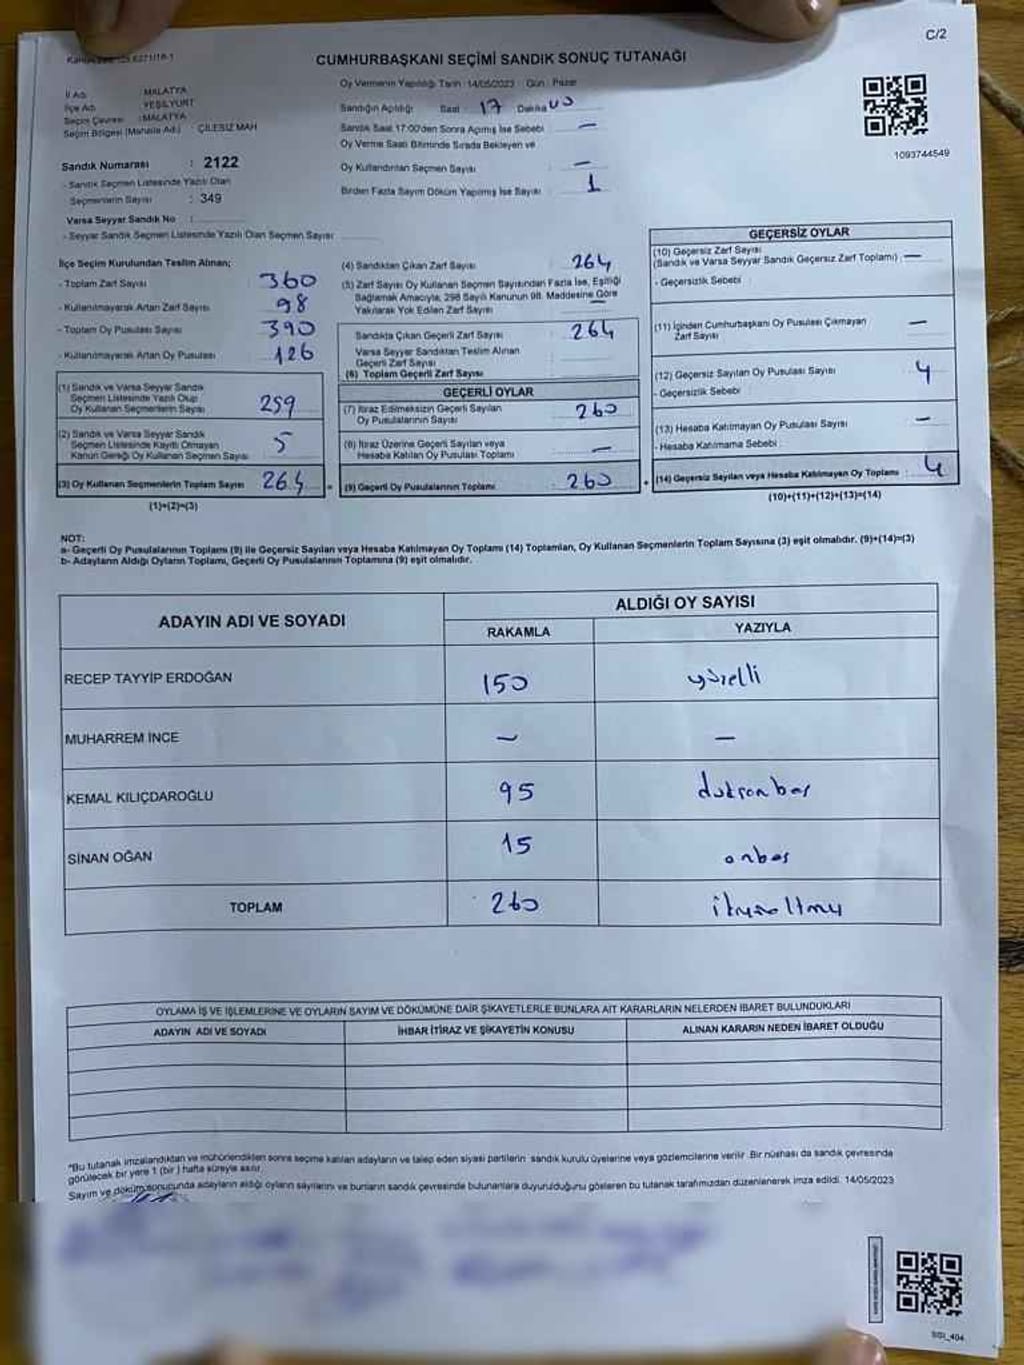 C/2
CUMHURBAŞKANI SEÇİMİ SANDIK SONUÇ TUTANAĞI
Oy Vermenin Yapıldığı Tarih : 14/05/2023 Gün : Pazar
İl Adı : MALATYA
İlçe Adı : YEŞİLYURT
Seçim Çevresi : MALATYA
Seçim Bölgesi (Mahalle Ad.) : ÇİLESİZ MAH
Sandığın Açıldığı Saat : 17 Dakika 00
Sandık Saat 17:00'den Sonra Açılmış İse Sebebi : —
Oy Verme Saati Bitiminde Sırada Bekleyen ve
Oy Kullandırılan Seçmen Sayısı : —
Birden Fazla Sayım Döküm Yapılmış İse Sayısı : 1
1093744549
Sandık Numarası : 2122
- Sandık Seçmen Listesinde Yazılı Olan
Seçmenlerin Sayısı : 349
Varsa Seyyar Sandık No :
- Seyyar Sandık Seçmen Listesinde Yazılı Olan Seçmen Sayısı
İlçe Seçim Kurulundan Teslim Alınan;
- Toplam Zarf Sayısı 360
- Kullanılmayarak Artan Zarf Sayısı 98
- Toplam Oy Pusulası Sayısı 390
- Kullanılmayarak Artan Oy Pusulası 126
(1) Sandık ve Varsa Seyyar Sandık
Seçmen Listesinde Yazılı Olup
Oy Kullanan Seçmenlerin Sayısı 259
(2) Sandık ve Varsa Seyyar Sandık
Seçmen Listesinde Kayıtlı Olmayan
Kanun Gereği Oy Kullanan Seçmen Sayısı 5
(3) Oy Kullanan Seçmenlerin Toplam Sayısı 264
(1)+(2)=(3)
(4) Sandıktan Çıkan Zarf Sayısı 264
(5) Zarf Sayısı Oy Kullanan Seçmen Sayısından Fazla İse, Eşitliği
Sağlamak Amacıyla, 298 Sayılı Kanunun 98. Maddesine Göre
Yakılarak Yok Edilen Zarf Sayısı —
Sandıkta Çıkan Geçerli Zarf Sayısı 264
Varsa Seyyar Sandıktan Teslim Alınan
Geçerli Zarf Sayısı
(6) Toplam Geçerli Zarf Sayısı
GEÇERLİ OYLAR
(7) İtiraz Edilmeksizin Geçerli Sayılan
Oy Pusulalarının Sayısı 260
(8) İtiraz Üzerine Geçerli Sayılan veya
Hesaba Katılan Oy Pusulası Toplamı —
(9) Geçerli Oy Pusulalarının Toplamı 260
GEÇERSİZ OYLAR
(10) Geçersiz Zarf Sayısı
(Sandık ve Varsa Seyyar Sandık Geçersiz Zarf Toplamı) : —
- Geçersizlik Sebebi :
(11) İçinden Cumhurbaşkanı Oy Pusulası Çıkmayan
Zarf Sayısı —
(12) Geçersiz Sayılan Oy Pusulası Sayısı 4
- Geçersizlik Sebebi :
(13) Hesaba Katılmayan Oy Pusulası Sayısı —
- Hesaba Katılmama Sebebi :
(14) Geçersiz Sayılan veya Hesaba Katılmayan Oy Toplamı : 4
(10)+(11)+(12)+(13)=(14)
NOT:
a- Geçerli Oy Pusulalarının Toplamı (9) ile Geçersiz Sayılan veya Hesaba Katılmayan Oy Toplamı (14) Toplamları, Oy Kullanan Seçmenlerin Toplam Sayısına (3) eşit olmalıdır. (9)+(14)=(3)
b- Adayların Aldığı Oyların Toplamı, Geçerli Oy Pusulalarının Toplamına (9) eşit olmalıdır.
ADAYIN ADI VE SOYADI
ALDIĞI OY SAYISI
RAKAMLA YAZIYLA
RECEP TAYYİP ERDOĞAN 150 yüzelli
MUHARREM İNCE — —
KEMAL KILIÇDAROĞLU 95 doksanbeş
SİNAN OĞAN 15 onbeş
TOPLAM 260 ikiyüzaltmış
OYLAMA İŞ VE İŞLEMLERİNE VE OYLARIN SAYIM VE DÖKÜMÜNE DAİR ŞİKAYETLERLE BUNLARA AİT KARARLARIN NELERDEN İBARET BULUNDUKLARI
ADAYIN ADI VE SOYADI İHBAR İTİRAZ VE ŞİKAYETİN KONUSU ALINAN KARARIN NEDEN İBARET OLDUĞU
*Bu tutanak imzalandıktan ve mühürlendikten sonra seçime katılan adayların ve talep eden siyasi partilerin sandık kurulu üyelerine veya gözlemcilerine verilir. Bir nüshası da sandık çevresinde
görülecek bir yere 1 (bir) hafta süreyle asılır.
Sayım ve döküm sonucunda adayların aldığı oyların sayılarını ve bunların sandık çevresinde bulunanlara duyurulduğunu gösteren bu tutanak tarafımızdan düzenlenerek imza edildi. 14/05/2023